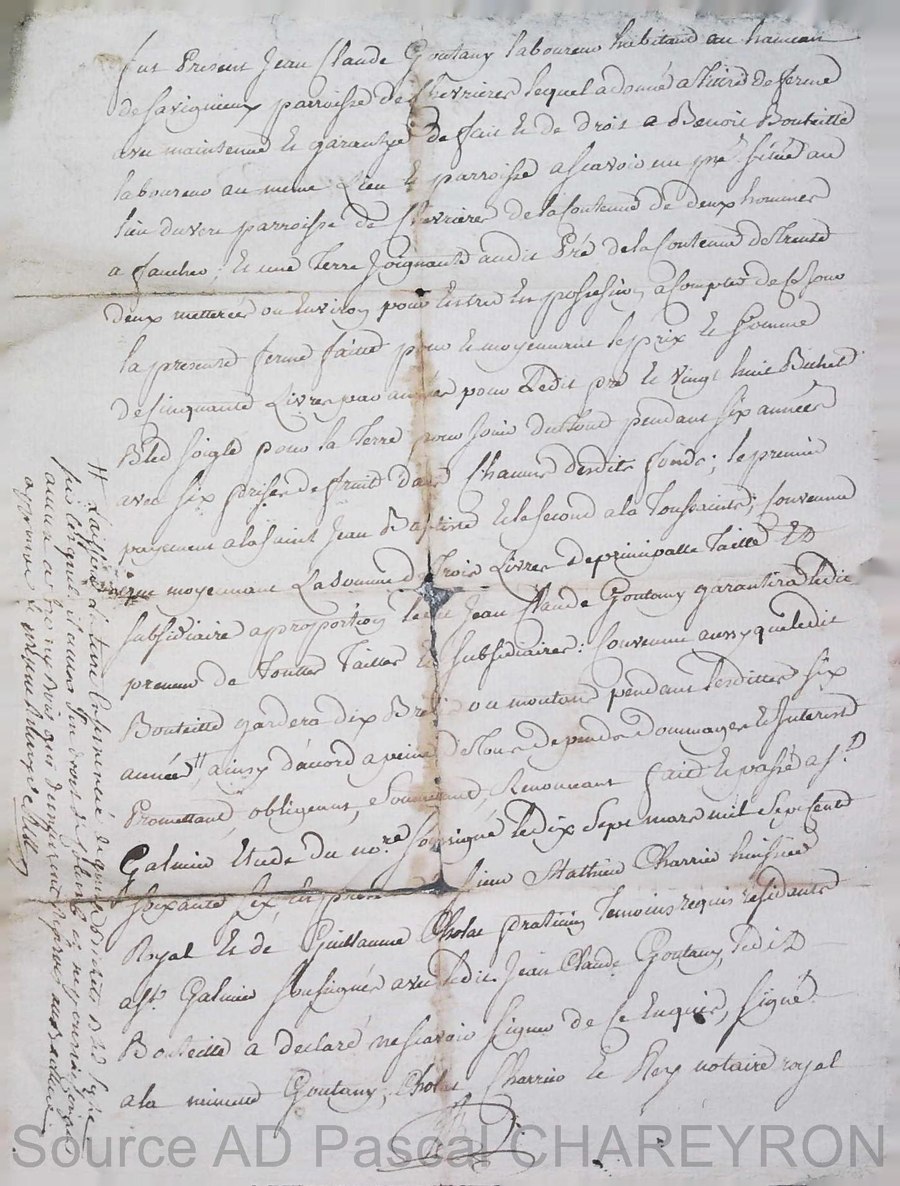 fut Present Jean Claude Goutany laboureur habitand au hameau
de Savignieux parroisse de Chevrières lequel a donné a titre de ferme
avec maintenüe et garantye de fait et de droit a Benoit Bouteille
laboureur au meme Lieu et parroisse ascavoir un pré situé au
lieu parroisse de Chevrières de la Contenue de deux hommes
a faucher; et une Terre Joignante audit Pré de la Contenue de Trente
deux metterées ou Environ pour Entrer En possession a Compter de Ce jour
la presente ferme faitte pour et moyennant le prix et Somme
de Cinquante Livres par année pour Ledit pré et Vingt huit Bichet
Bled Soigle pour la Terre pour Jouir du tout pendant Six années
avec Six prises de fruit dans Chacuns desdits fonds; le premier
payement a la Saint Jean Baptiste et le Second a la Toussaints; Convenue
que moyennant La Somme de Trois Livres de principalle Taille Et
Subsidiaire a proportion ledit Jean Claude Goutany garantira ledit
preneur de Touttes Tailles Et Subsidiaires: Convenue aussy que ledit
Bouteille gardera dix Brebis ou moutons pendant lesdittes Six
année # ainsy d'acord a peine de Tous depends dommages et Interest
Promettant, obligeant, Soumettant, Renoncant fait et passé a St
Galmier Etude du nore Soussigné le dix Sept mars mil Sept Cent
Soixante Six, En presence de Sieur Mathieu Charrier huissier
Royal et de Guillaume Cholat praticien Temoins requis résidants
a St Galmier Soussignés avec ledit Jean Claude Goutany, ledit
Bouteille a declaré ne Scavoir Signer de Ce Enquis, Signé
a la minutte Goutany, Cholat Charrier et Rey notaire royal
# Laissera la terre Ensemencé de bichets Bled Sigle
approuvé
Source AD Pascal CHAREYRON